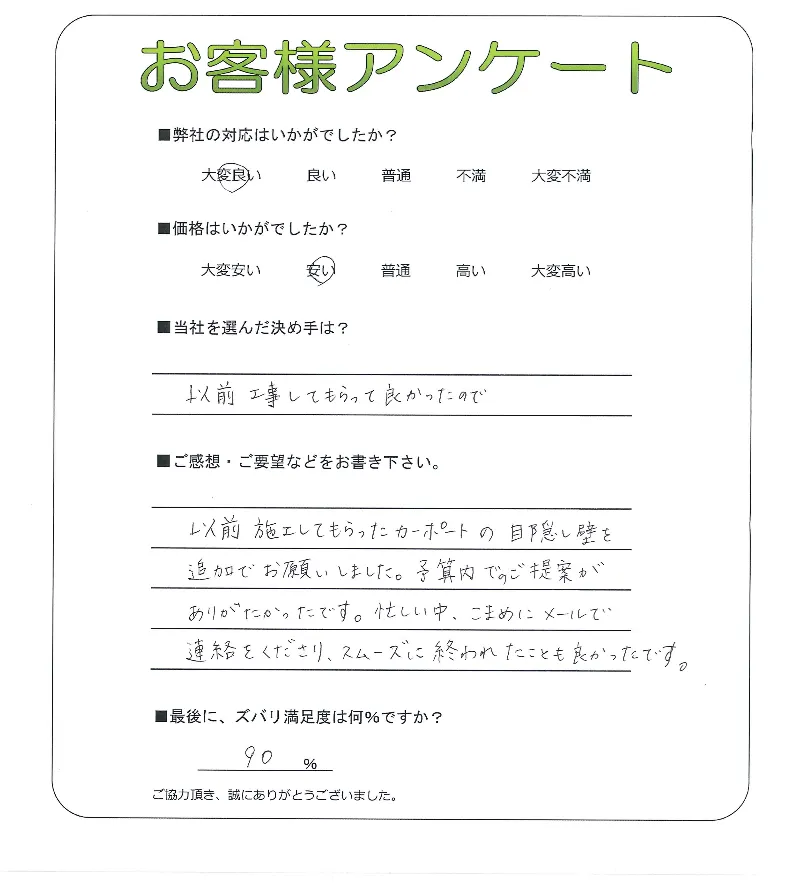 お客様アンケート
■弊社の対応はいかがでしたか？
大変良い 良い 普通 不満 大変不満
■価格はいかがでしたか？
大変安い 安い 普通 高い 大変高い
■当社を選んだ決め手は？
以前 工事してもらって良かったので
■ご感想・ご要望などをお書き下さい。
以前 施工してもらったカーポートの 目隠し壁を
追加でお願いしました。予算内でのご提案が
ありがたかったです。忙しい中、こまめにメールで
連絡をくださり、スムーズに終われたことも良かったです。
■最後に、ズバリ満足度は何%ですか？
90 %
ご協力頂き、誠にありがとうございました。